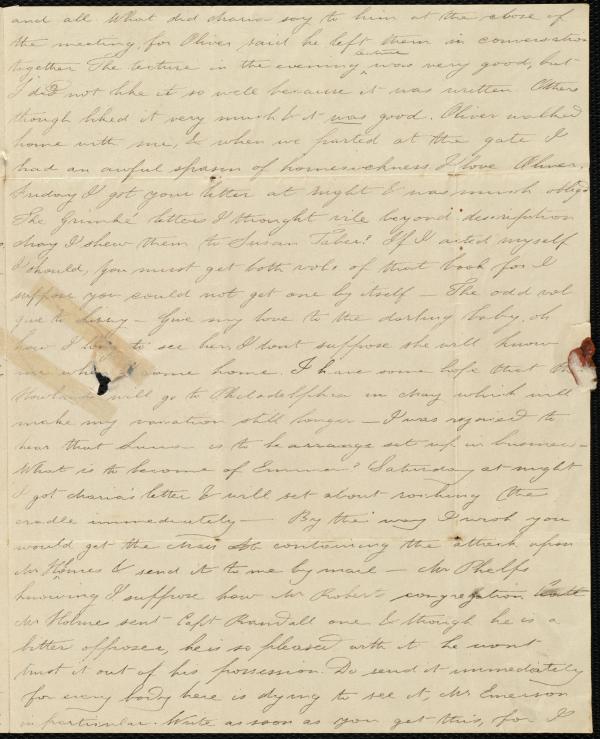 and all What did Maria say to him at the close of
the meeting, for Oliver said he left them in conversation
together The lecture in the evening was very good, but
I did not like it so well because it was written Others
though liked it very much & it was good. Oliver walked
home with me, & when we parted at the gate I
had an awful spasm of homesickness I love Oliver.
Friday I got your letter at night & was much oblig'd
The Grimké letters I thought vile beyond description
may I shew them to Susan Taber? If I acted myself
I should, you must get both vols of that book for I
suppose you could not get one by itself – The odd vol
give to – Give my love to the darling baby, oh
how I long to see her, I dont suppose she will know
me when I come home. I have some hope that the
Howlands will go to Philadelphia in May which will
make my vacation still longer – I was rejoiced to
hear that is to be set up in business –
What is to become of Emma? Saturday at night
I got Maria's letter & will set about rocking the
cradle immediately – By the way I wish you
would get the containing the attack upon
Mr Holmes & send it to me by mail – Mr Phelps
knowing I suppose how Mr Roberts congregation
Mr Holmes sent Capt Randall one & though he is a
bitter opposer, he is so pleased with it he wont
trust it out of his possession. Do send it immediately
for every body here is dying to see it, Mr Emerson
in particular. Write as soon as you get this, for I